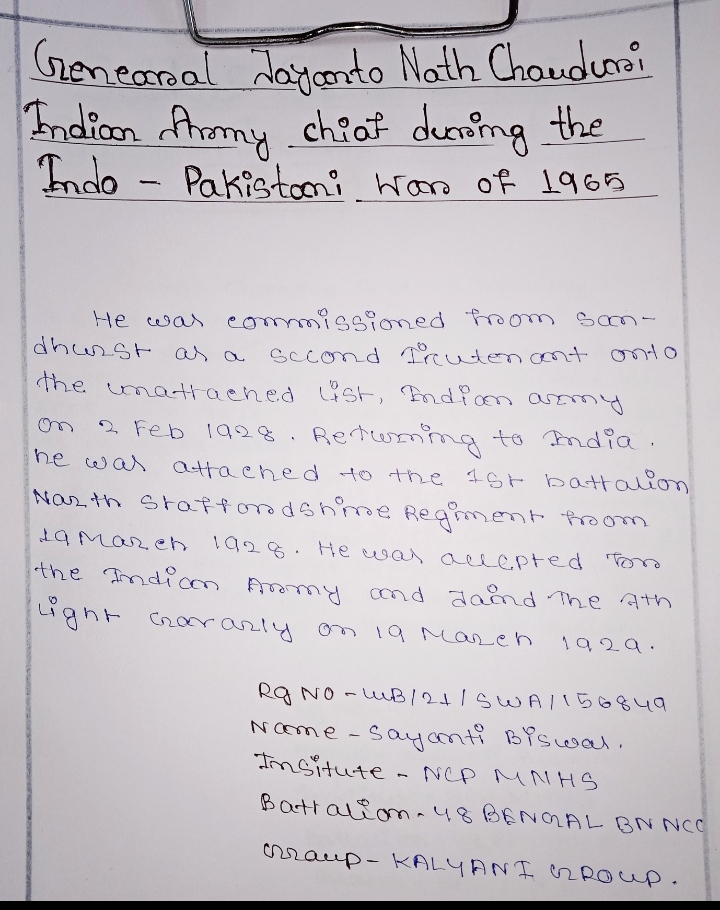 Genearal Jayanto Nath Chauduri
Indian Army chiaf during the
Indo - Pakistani War of 1965
He was commissioned from San-
dhurst as a second lieutenant onto
the unattached list, Indian army
on 2 Feb 1928. Returning to India.
he was attached to the 1st battalion
North Staffordshire Regiment from
19 March 1928. He was accepted for
the Indian Army and Jaind The 7th
Light Cavarly on 19 March 1929.
Rg NO - WB/21/SWA/156849
Name - Sayanti Biswal.
Insitute - NCP MNHS
Battalion - 48 BENGAL BN NCC
Group - KALYANI GROUP.